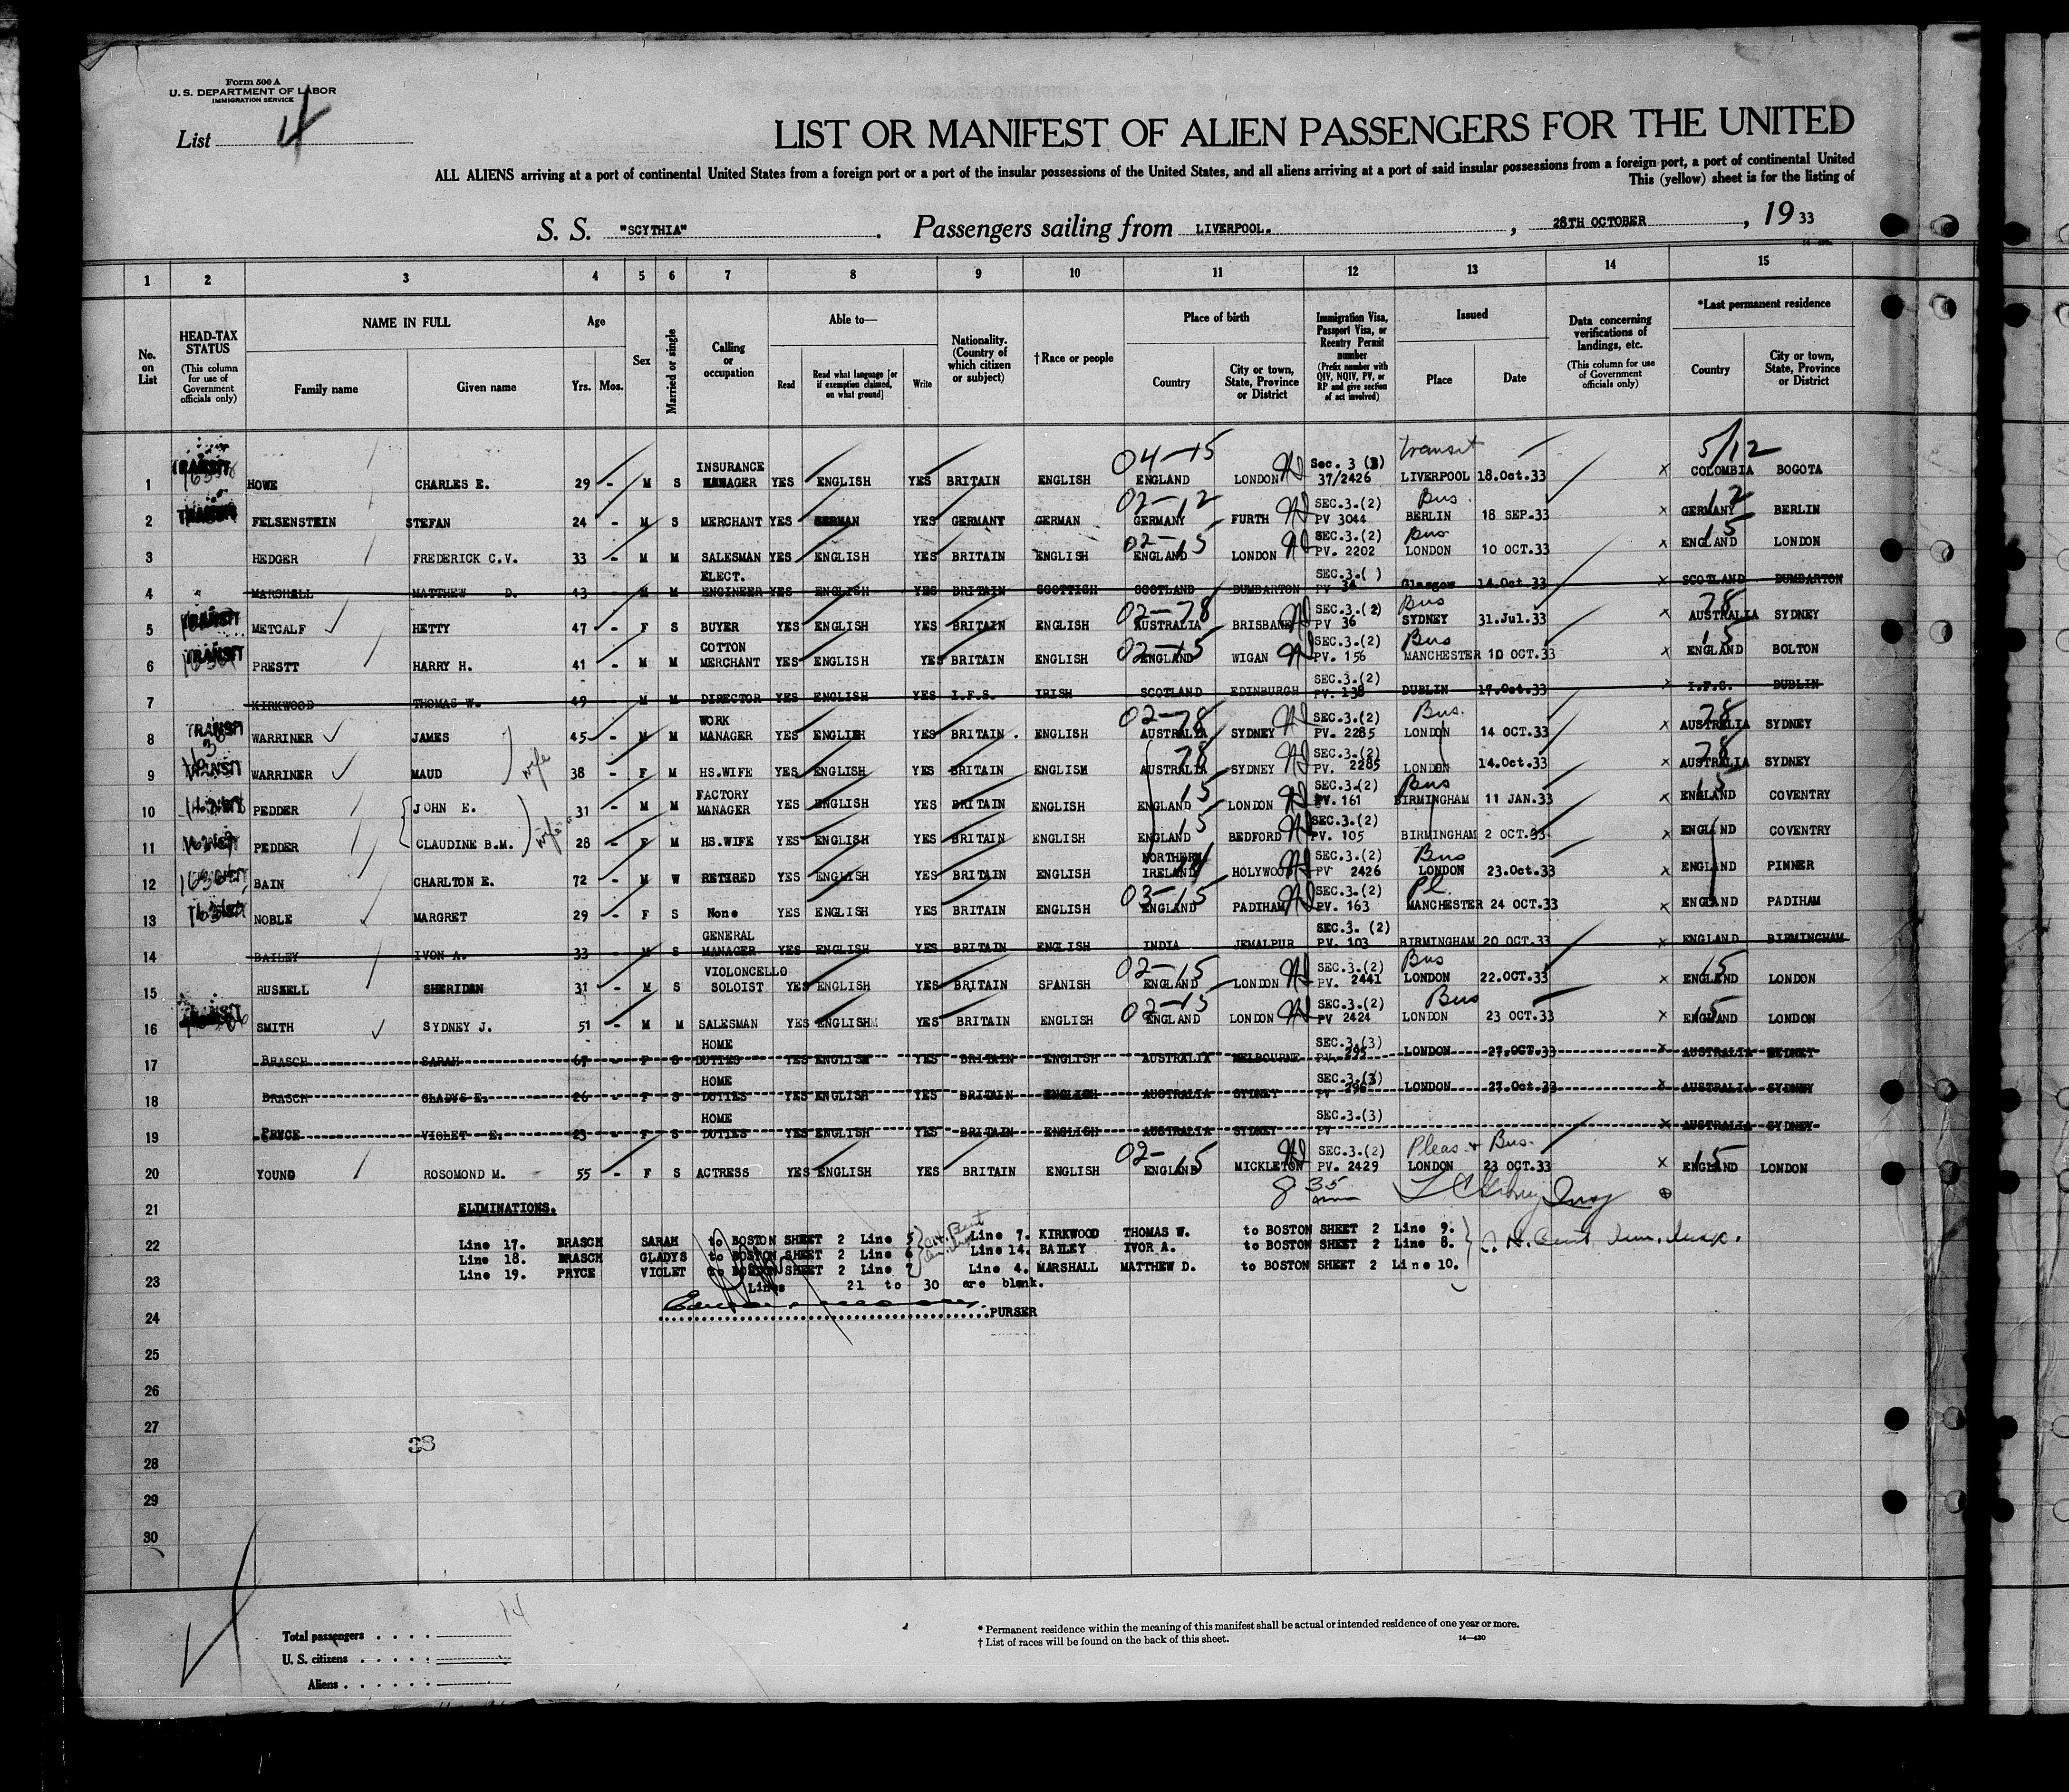 Form 500 A
U. S. DEPARTMENT OF LABOR
IMMIGRATION SERVICE
List 4
LIST OR MANIFEST OF ALIEN PASSENGERS FOR THE UNITED
ALL ALIENS arriving at a port of continental United States from a foreign port or a port of the insular possessions of the United States, and all aliens arriving at a port of said insular possessions from a foreign port, a port of continental United
This (yellow) sheet is for the listing of
S. S. "SCYTHIA" . Passengers sailing from LIVERPOOL. , 28TH OCTOBER , 19 33
1 2 3 4 5 6 7 8 9 10 11 12 13 14 15
No. on List
HEAD-TAX STATUS (This column for use of Government officials only)
NAME IN FULL
Family name Given name
Age
Yrs. Mos.
Sex
Married or single
Calling or occupation
Able to—
Read Read what language [or if exemption claimed, on what ground] Write
Nationality. (Country of which citizen or subject)
†Race or people
Place of birth
Country City or town, State, Province or District
Immigration Visa, Passport Visa, or Reentry Permit number (Prefix number with QIV, NQIV, PV, or RP and give section of act involved)
Issued
Place Date
Data concerning verifications of landings, etc. (This column for use of Government officials only)
*Last permanent residence
Country City or town, State, Province or District
1 TRANSIT HOWE CHARLES E. 29 - M S INSURANCE MANAGER YES ENGLISH YES BRITAIN ENGLISH 04-15 ENGLAND LONDON Sec. 3 (3) 37/2426 transit LIVERPOOL 18.Oct.33 x 5/12 COLOMBIA BOGOTA
2 TRANSIT FELSENSTEIN STEFAN 24 - M S MERCHANT YES GERMAN YES GERMANY GERMAN 02-12 GERMANY FURTH SEC.3.(2) PV 3044 Bus. BERLIN 18 SEP.33 x 12 GERMANY BERLIN
3 HEDGER FREDERICK C.V. 33 - M M SALESMAN YES ENGLISH YES BRITAIN ENGLISH 02-15 ENGLAND LONDON SEC.3.(2) PV. 2202 Bus LONDON 10 OCT.33 x 15 ENGLAND LONDON
4 MARSHALL MATTHEW D. 43 - M M ELECT. ENGINEER YES ENGLISH YES BRITAIN SCOTTISH SCOTLAND DUMBARTON SEC.3.( ) PV 34 Glasgow 14.Oct.33 x SCOTLAND DUMBARTON
5 TRANSIT METCALF HETTY 47 - F S BUYER YES ENGLISH YES BRITAIN ENGLISH 02-78 AUSTRALIA BRISBANE SEC.3.(2) PV 36 Bus SYDNEY 31.Jul.33 x 78 AUSTRALIA SYDNEY
6 TRANSIT PRESTT HARRY H. 41 - M M COTTON MERCHANT YES ENGLISH YES BRITAIN ENGLISH 02-15 ENGLAND WIGAN SEC.3.(2) PV. 156 Bus MANCHESTER 10 OCT.33 x 15 ENGLAND BOLTON
7 KIRKWOOD THOMAS W. 49 - M M DIRECTOR YES ENGLISH YES I.F.S. IRISH SCOTLAND EDINBURGH SEC.3.(2) PV. 138 DUBLIN 17.Oct.33 x I.F.S. DUBLIN
8 TRANSIT WARRINER JAMES 45 - M M WORK MANAGER YES ENGLISH YES BRITAIN . ENGLISH 02-78 AUSTRALIA SYDNEY SEC.3.(2) PV. 2285 Bus. LONDON 14 OCT.33 x 78 AUSTRALIA SYDNEY
9 TRANSIT WARRINER MAUD wife 38 - F M HS.WIFE YES ENGLISH YES BRITAIN ENGLISH 78 AUSTRALIA SYDNEY SEC.3.(2) PV. 2285 LONDON 14.Oct.33 x 78 AUSTRALIA SYDNEY
10 PEDDER JOHN E. 31 - M M FACTORY MANAGER YES ENGLISH YES BRITAIN ENGLISH 15 ENGLAND LONDON SEC.3.(2) PV. 161 Bus BIRMINGHAM 11 JAN.33 x 15 ENGLAND COVENTRY
11 PEDDER CLAUDINE B.M. wife 28 - F M HS.WIFE YES ENGLISH YES BRITAIN ENGLISH 15 ENGLAND BEDFORD SEC.3.(2) PV. 105 BIRMINGHAM 2 OCT.33 x ENGLAND COVENTRY
12 BAIN CHARLTON E. 72 - M W RETIRED YES ENGLISH YES BRITAIN ENGLISH NORTHERN IRELAND HOLYWOOD SEC.3.(2) PV 2426 Bus LONDON 23.Oct.33 x ENGLAND PINNER
13 NOBLE MARGRET 29 - F S None YES ENGLISH YES BRITAIN ENGLISH 03-15 ENGLAND PADIHAM SEC.3.(2) PV. 163 Pl. MANCHESTER 24 OCT.33 x ENGLAND PADIHAM
14 BAILEY IVON A. 33 - M S GENERAL MANAGER YES ENGLISH YES BRITAIN ENGLISH INDIA JEMALPUR SEC.3. (2) PV. 103 BIRMINGHAM 20 OCT.33 x ENGLAND BIRMINGHAM
15 RUSSELL SHERIDAN 31 - M S VIOLONCELLO SOLOIST YES ENGLISH YES BRITAIN SPANISH 02-15 ENGLAND LONDON SEC.3.(2) PV. 2441 Bus LONDON 22.OCT.33 x 15 ENGLAND LONDON
16 TRANSIT SMITH SYDNEY J. 51 - M M SALESMAN YES ENGLISH YES BRITAIN ENGLISH 02-15 ENGLAND LONDON SEC.3.(2) PV 2424 Bus LONDON 23 OCT.33 x 15 ENGLAND LONDON
17 BRASCH SARAH 67 - F S HOME DUTIES YES ENGLISH YES BRITAIN ENGLISH AUSTRALIA MELBOURNE SEC.3.(3) PV. 295 LONDON 27.OCT.33 x AUSTRALIA SYDNEY
18 BRASCH GLADYS E. 26 - F S HOME DUTIES YES ENGLISH YES BRITAIN ENGLISH AUSTRALIA SYDNEY SEC.3.(3) PV 296 LONDON 27.Oct.33 x AUSTRALIA SYDNEY
19 PRYCE VIOLET E. 23 - F S HOME DUTIES YES ENGLISH YES BRITAIN ENGLISH AUSTRALIA SYDNEY SEC.3.(3) PV x AUSTRALIA SYDNEY
20 YOUNG ROSOMOND M. 55 - F S ACTRESS YES ENGLISH YES BRITAIN ENGLISH 02-15 ENGLAND MICKLETON SEC.3.(2) PV. 2429 Pleas + Bus. LONDON 23 OCT.33 x 15 ENGLAND LONDON
8 35
21 ELIMINATIONS.
22 Line 17. BRASCH SARAH to BOSTON SHEET 2 Line 5 Line 7. KIRKWOOD THOMAS W. to BOSTON SHEET 2 Line 9.
Line 18. BRASCH GLADYS to BOSTON SHEET 2 Line 6 Line 14. BAILEY IVOR A. to BOSTON SHEET 2 Line 8.
Line 19. PRYCE VIOLET to BOSTON SHEET 2 Line 7 Line 4. MARSHALL MATTHEW D. to BOSTON SHEET 2 Line 10.
23 Lines 21 to 30 are blank.
24 PURSER
25
26
27
38
28
29
30
14
Total passengers
U. S. citizens
Aliens
* Permanent residence within the meaning of this manifest shall be actual or intended residence of one year or more.
† List of races will be found on the back of this sheet. 14—430